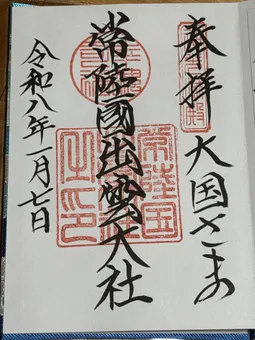 奉拝 大国さま
常陸國出雲大社
令和八年一月七日
常陸国